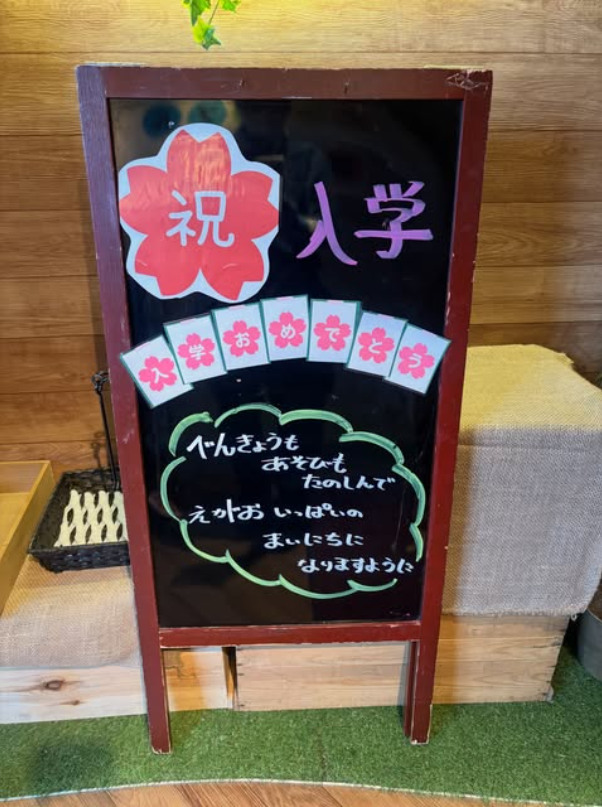 祝 入学
入学おめでとう
べんきょうも
あそびも
たのしんで
えがお いっぱいの
まいにちに
なりますように